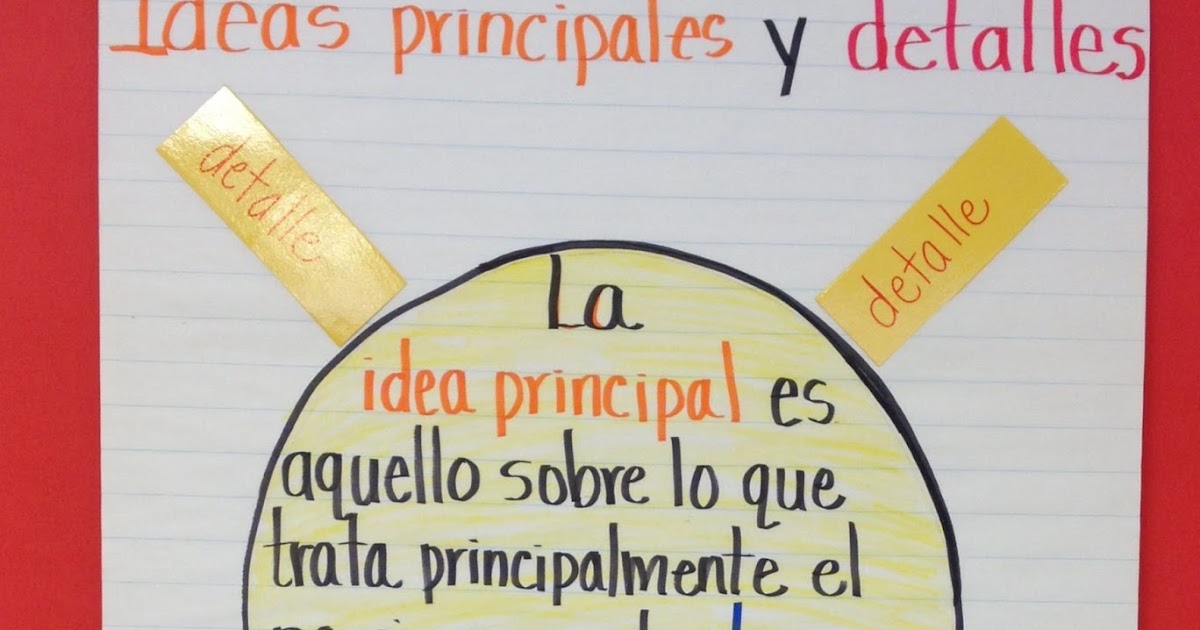 Ideas principales y detalles
detalle
detalle
La
idea principal es
aquello sobre lo que
trata principalmente el